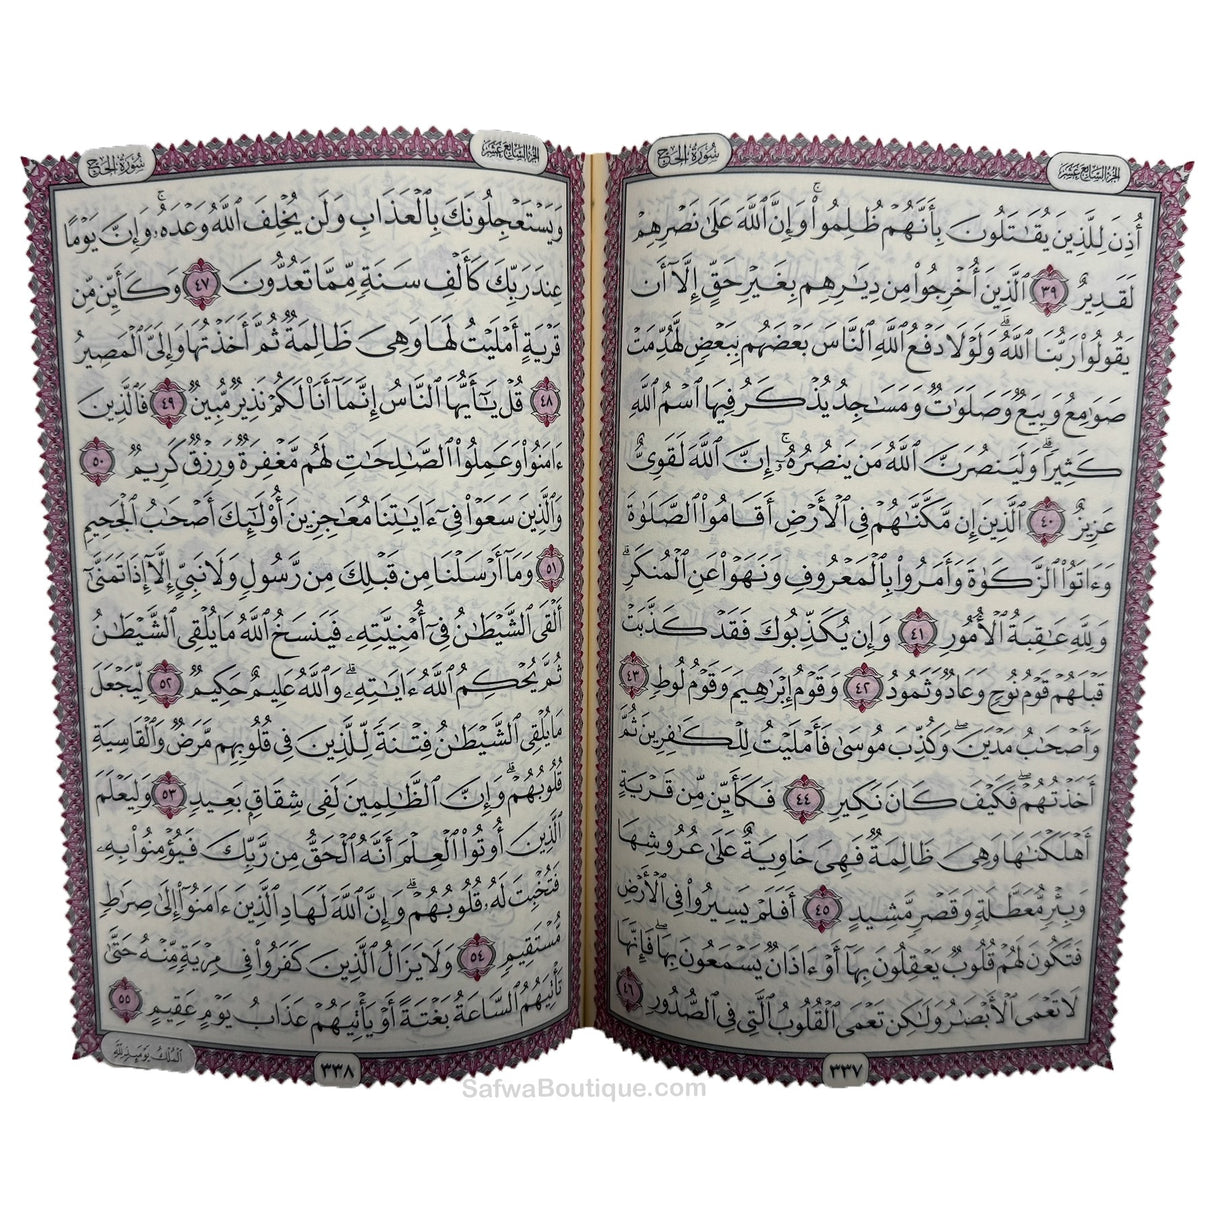 سُورَةُ الحَجِّ
الجُزءُ السَّابِعَ عَشَرَ
أُذِنَ لِلَّذِينَ يُقَٰتَلُونَ بِأَنَّهُمۡ ظُلِمُواْۚ وَإِنَّ ٱللَّهَ عَلَىٰ نَصۡرِهِمۡ
لَقَدِيرٌ ٣٩ ٱلَّذِينَ أُخۡرِجُواْ مِن دِيَٰرِهِم بِغَيۡرِ حَقٍّ إِلَّآ أَن
يَقُولُواْ رَبُّنَا ٱللَّهُۗ وَلَوۡلَا دَفۡعُ ٱللَّهِ ٱلنَّاسَ بَعۡضَهُم بِبَعۡضٖ لَّهُدِّمَتۡ
صَوَٰمِعُ وَبِيَعٞ وَصَلَوَٰتٞ وَمَسَٰجِدُ يُذۡكَرُ فِيهَا ٱسۡمُ ٱللَّهِ
كَثِيرٗاۗ وَلَيَنصُرَنَّ ٱللَّهُ مَن يَنصُرُهُۥٓۚ إِنَّ ٱللَّهَ لَقَوِيٌّ
عَزِيزٌ ٤٠ ٱلَّذِينَ إِن مَّكَّنَّٰهُمۡ فِي ٱلۡأَرۡضِ أَقَامُواْ ٱلصَّلَوٰةَ
وَءَاتَوُاْ ٱلزَّكَوٰةَ وَأَمَرُواْ بِٱلۡمَعۡرُوفِ وَنَهَوۡاْ عَنِ ٱلۡمُنكَرِۗ
وَلِلَّهِ عَٰقِبَةُ ٱلۡأُمُورِ ٤١ وَإِن يُكَذِّبُوكَ فَقَدۡ كَذَّبَتۡ
قَبۡلَهُمۡ قَوۡمُ نُوحٖ وَعَادٞ وَثَمُودُ ٤٢ وَقَوۡمُ إِبۡرَٰهِيمَ وَقَوۡمُ لُوطٖ ٤٣
وَأَصۡحَٰبُ مَدۡيَنَۖ وَكُذِّبَ مُوسَىٰ فَأَمۡلَيۡتُ لِلۡكَٰفِرِينَ ثُمَّ
أَخَذۡتُهُمۡۖ فَكَيۡفَ كَانَ نَكِيرِ ٤٤ فَكَأَيِّن مِّن قَرۡيَةٍ
أَهۡلَكۡنَٰهَا وَهِيَ ظَالِمَةٞ فَهِيَ خَاوِيَةٌ عَلَىٰ عُرُوشِهَا
وَبِئۡرٖ مُّعَطَّلَةٖ وَقَصۡرٖ مَّشِيدٍ ٤٥ أَفَلَمۡ يَسِيرُواْ فِي ٱلۡأَرۡضِ
فَتَكُونَ لَهُمۡ قُلُوبٞ يَعۡقِلُونَ بِهَآ أَوۡ ءَاذَانٞ يَسۡمَعُونَ بِهَاۖ فَإِنَّهَا
لَا تَعۡمَى ٱلۡأَبۡصَٰرُ وَلَٰكِن تَعۡمَى ٱلۡقُلُوبُ ٱلَّتِي فِي ٱلصُّدُورِ ٤٦
٣٣٧
سُورَةُ الحَجِّ
الجُزءُ السَّابِعَ عَشَرَ
وَيَسۡتَعۡجِلُونَكَ بِٱلۡعَذَابِ وَلَن يُخۡلِفَ ٱللَّهُ وَعۡدَهُۥۚ وَإِنَّ يَوۡمًا
عِندَ رَبِّكَ كَأَلۡفِ سَنَةٖ مِّمَّا تَعُدُّونَ ٤٧ وَكَأَيِّن مِّن
قَرۡيَةٍ أَمۡلَيۡتُ لَهَا وَهِيَ ظَالِمَةٞ ثُمَّ أَخَذۡتُهَا وَإِلَيَّ ٱلۡمَصِيرُ
٤٨ قُلۡ يَٰٓأَيُّهَا ٱلنَّاسُ إِنَّمَآ أَنَا۠ لَكُمۡ نَذِيرٞ مُّبِينٞ ٤٩ فَٱلَّذِينَ
ءَامَنُواْ وَعَمِلُواْ ٱلصَّٰلِحَٰتِ لَهُم مَّغۡفِرَةٞ وَرِزۡقٞ كَرِيمٞ ٥٠
وَٱلَّذِينَ سَعَوۡاْ فِيٓ ءَايَٰتِنَا مُعَٰجِزِينَ أُوْلَٰٓئِكَ أَصۡحَٰبُ ٱلۡجَحِيمِ
٥١ وَمَآ أَرۡسَلۡنَا مِن قَبۡلِكَ مِن رَّسُولٖ وَلَا نَبِيٍّ إِلَّآ إِذَا تَمَنَّىٰٓ
أَلۡقَى ٱلشَّيۡطَٰنُ فِيٓ أُمۡنِيَّتِهِۦ فَيَنسَخُ ٱللَّهُ مَا يُلۡقِي ٱلشَّيۡطَٰنُ
ثُمَّ يُحۡكِمُ ٱللَّهُ ءَايَٰتِهِۦۗ وَٱللَّهُ عَلِيمٌ حَكِيمٞ ٥٢ لِّيَجۡعَلَ
مَا يُلۡقِي ٱلشَّيۡطَٰنُ فِتۡنَةٗ لِّلَّذِينَ فِي قُلُوبِهِم مَّرَضٞ وَٱلۡقَاسِيَةِ
قُلُوبُهُمۡۗ وَإِنَّ ٱلظَّٰلِمِينَ لَفِي شِقَاقِۭ بَعِيدٖ ٥٣ وَلِيَعۡلَمَ
ٱلَّذِينَ أُوتُواْ ٱلۡعِلۡمَ أَنَّهُ ٱلۡحَقُّ مِن رَّبِّكَ فَيُؤۡمِنُواْ بِهِۦ
فَتُخۡبِتَ لَهُۥ قُلُوبُهُمۡۗ وَإِنَّ ٱللَّهَ لَهَادِ ٱلَّذِينَ ءَامَنُوٓاْ إِلَىٰ صِرَٰطٖ
مُّسۡتَقِيمٖ ٥٤ وَلَا يَزَالُ ٱلَّذِينَ كَفَرُواْ فِي مِرۡيَةٖ مِّنۡهُ حَتَّىٰ
تَأۡتِيَهُمُ ٱلسَّاعَةُ بَغۡتَةً أَوۡ يَأۡتِيَهُمۡ عَذَابُ يَوۡمٍ عَقِيمٍ ٥٥
ٱلۡمُلۡكُ يَوۡمَئِذٖ لِّلَّهِ
٣٣٨
SafwaBoutique.com